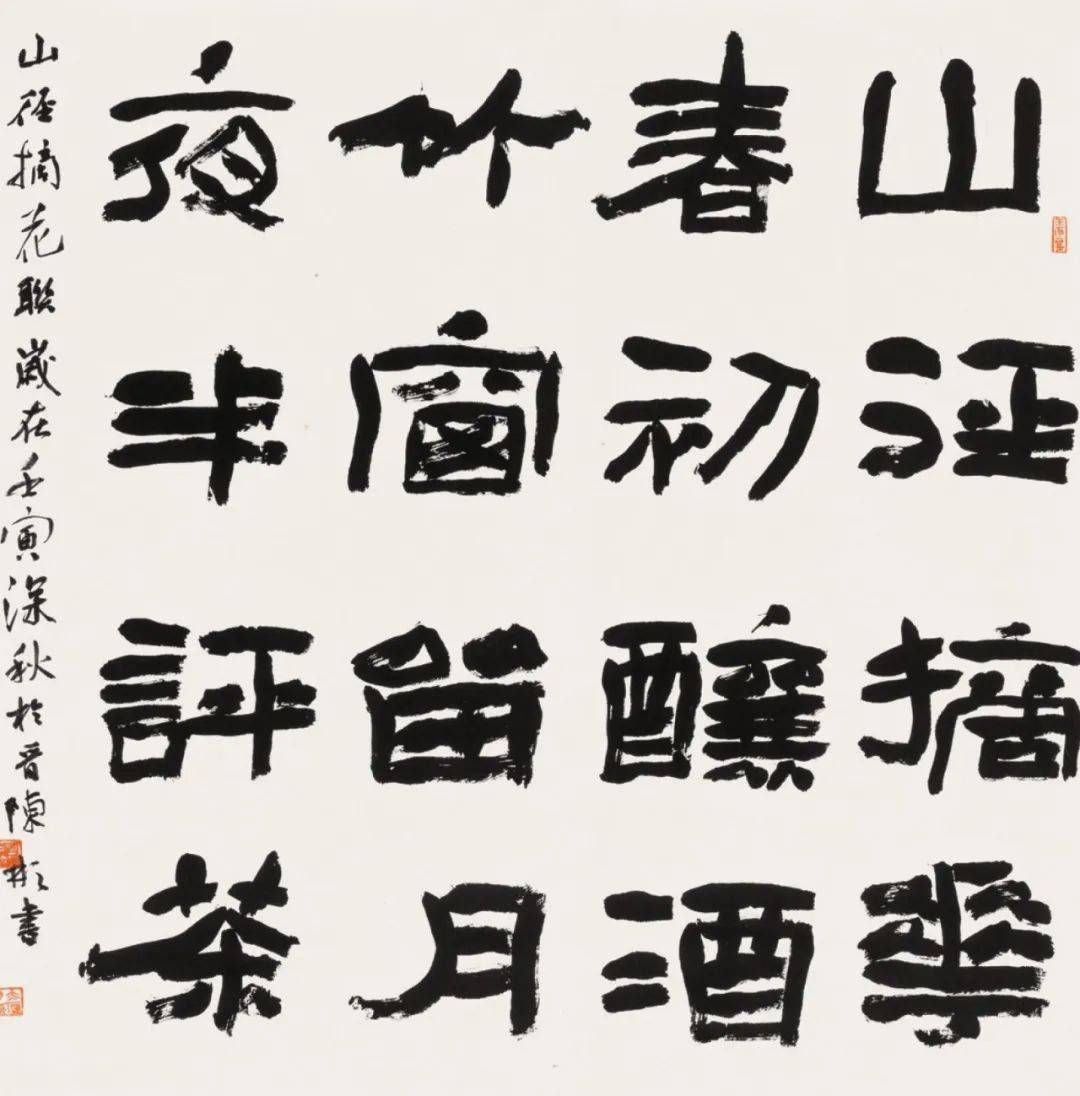 山径摘華
春初釀酒
竹窗留月
夜半評茶
山径摘花聯歲在壬寅深秋於晋陳彬書